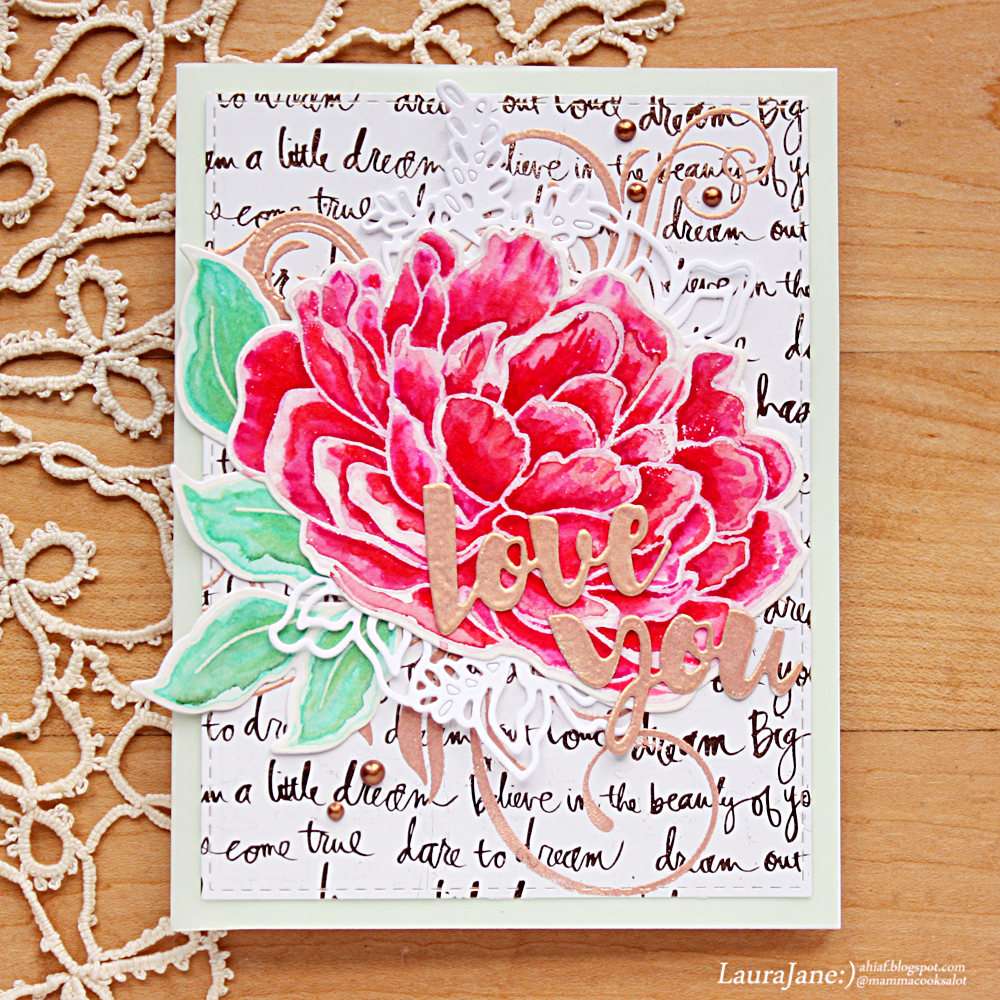 to dream dream out loud dream Big
am a little dream believe in the beauty of yo
s come true dream out
believe in the
has
love
you
to dream out loud dream Big
am a little dream believe in the beauty of yo
s come true dare to dream dream out
LauraJane:) ahiaf.blogspot.com
@mammacooksalot